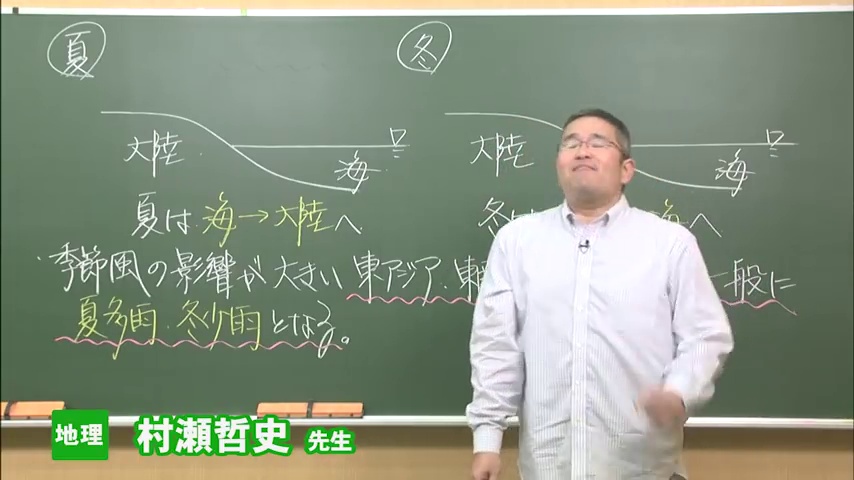 夏 冬
大陸 海 大陸 海
夏は 海→大陸へ 冬は 海へ
季節風の影響が大きい 東アジア・東 一般に
夏多雨・冬少雨となる。
地理 村瀬哲史 先生